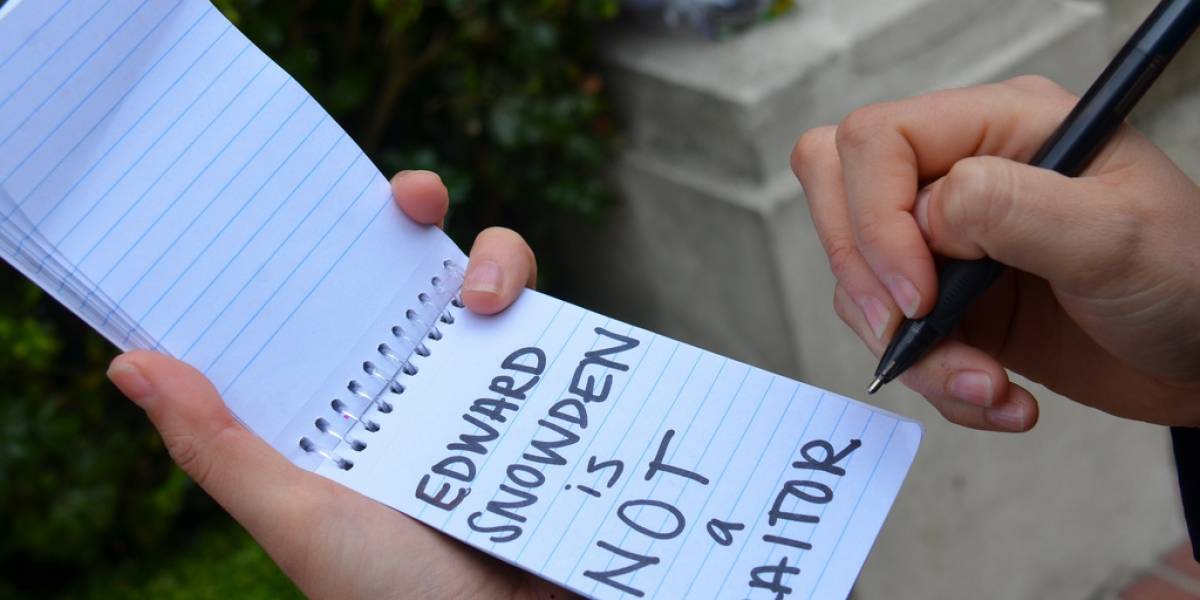 EDWARD
SNOWDEN
is
NOT
a
AITOR